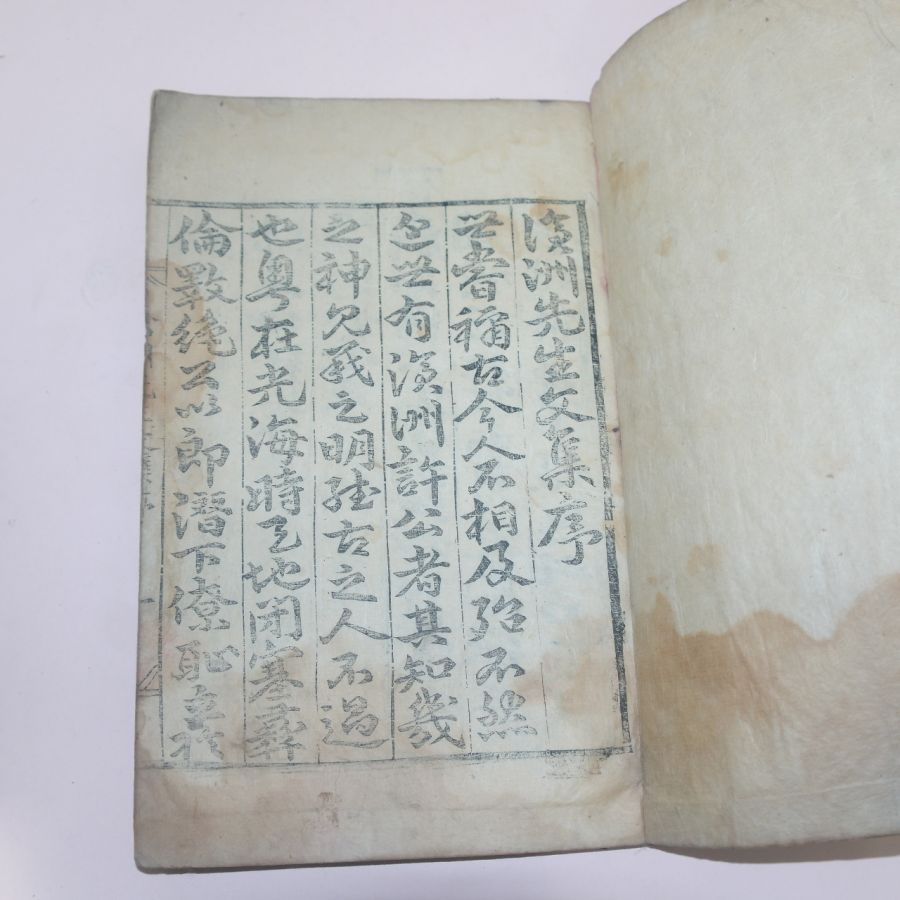 濱洲先生文集序
世嘗稱古今人不相及殆不然
近世有濱洲許公者其知幾
之神見義之明雖古之人不過
也粤在光海時天地閉塞彛
倫斁絶公以郎潛下僚恥立於